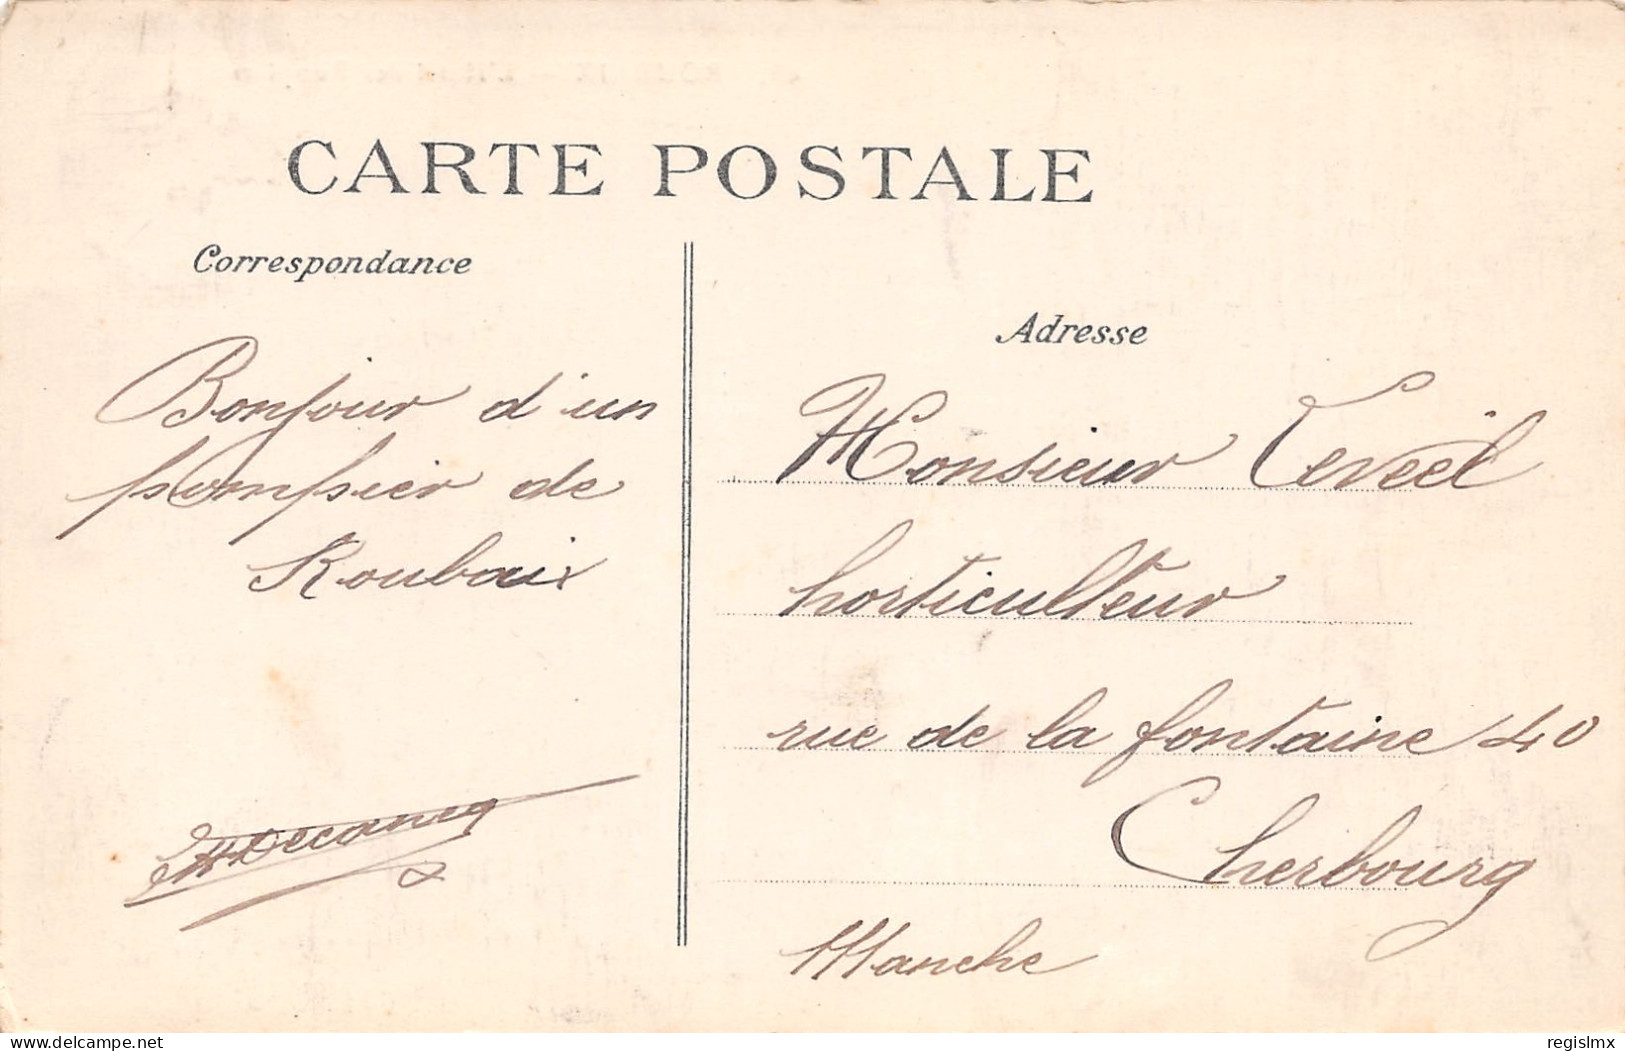 CARTE POSTALE
Correspondance
Bonjour d'un
pompier de
Roubaix
Adresse
Monsieur
horticulteur
rue de la fontaine 40
Cherbourg
Manche
delcampe.net
regislmx